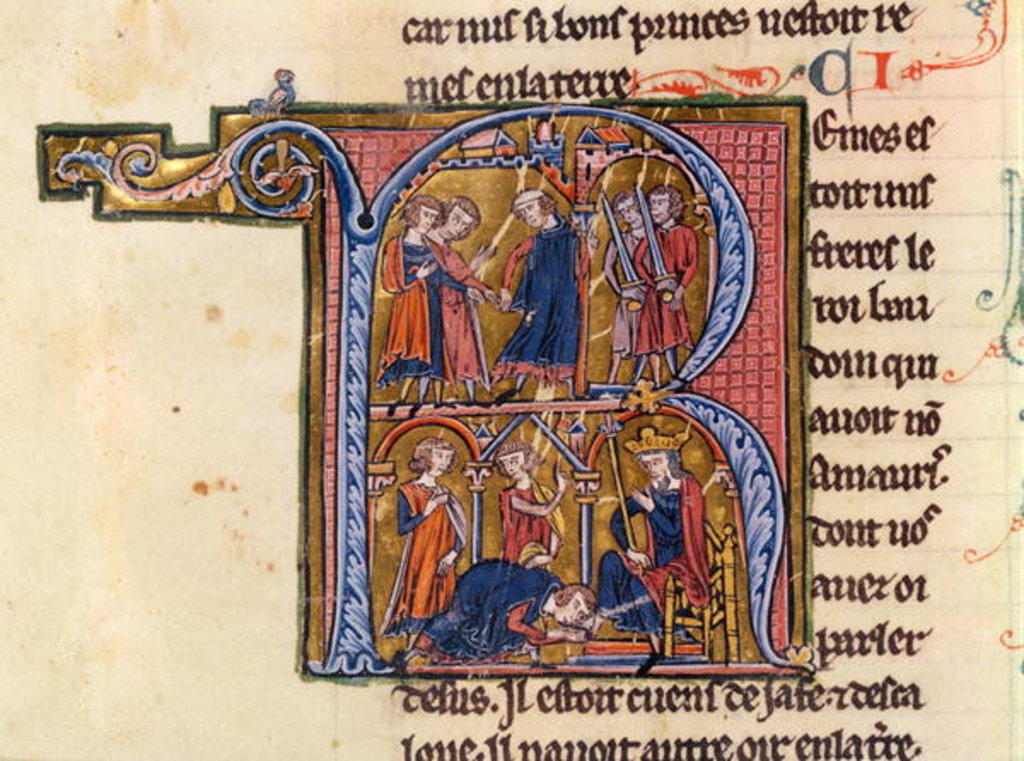 car nus si bons princes nestoit re
mes en la terre. C I
R Emes es
toit uns
freres le
roi bau
doin qui
auoit nō
Amauri.
dont uoꝰ
auez oi
parler
desus. Il estoit cuens de Jafe. ⁊ desca
lone. Il nauoit autre oir en la tr̃e.